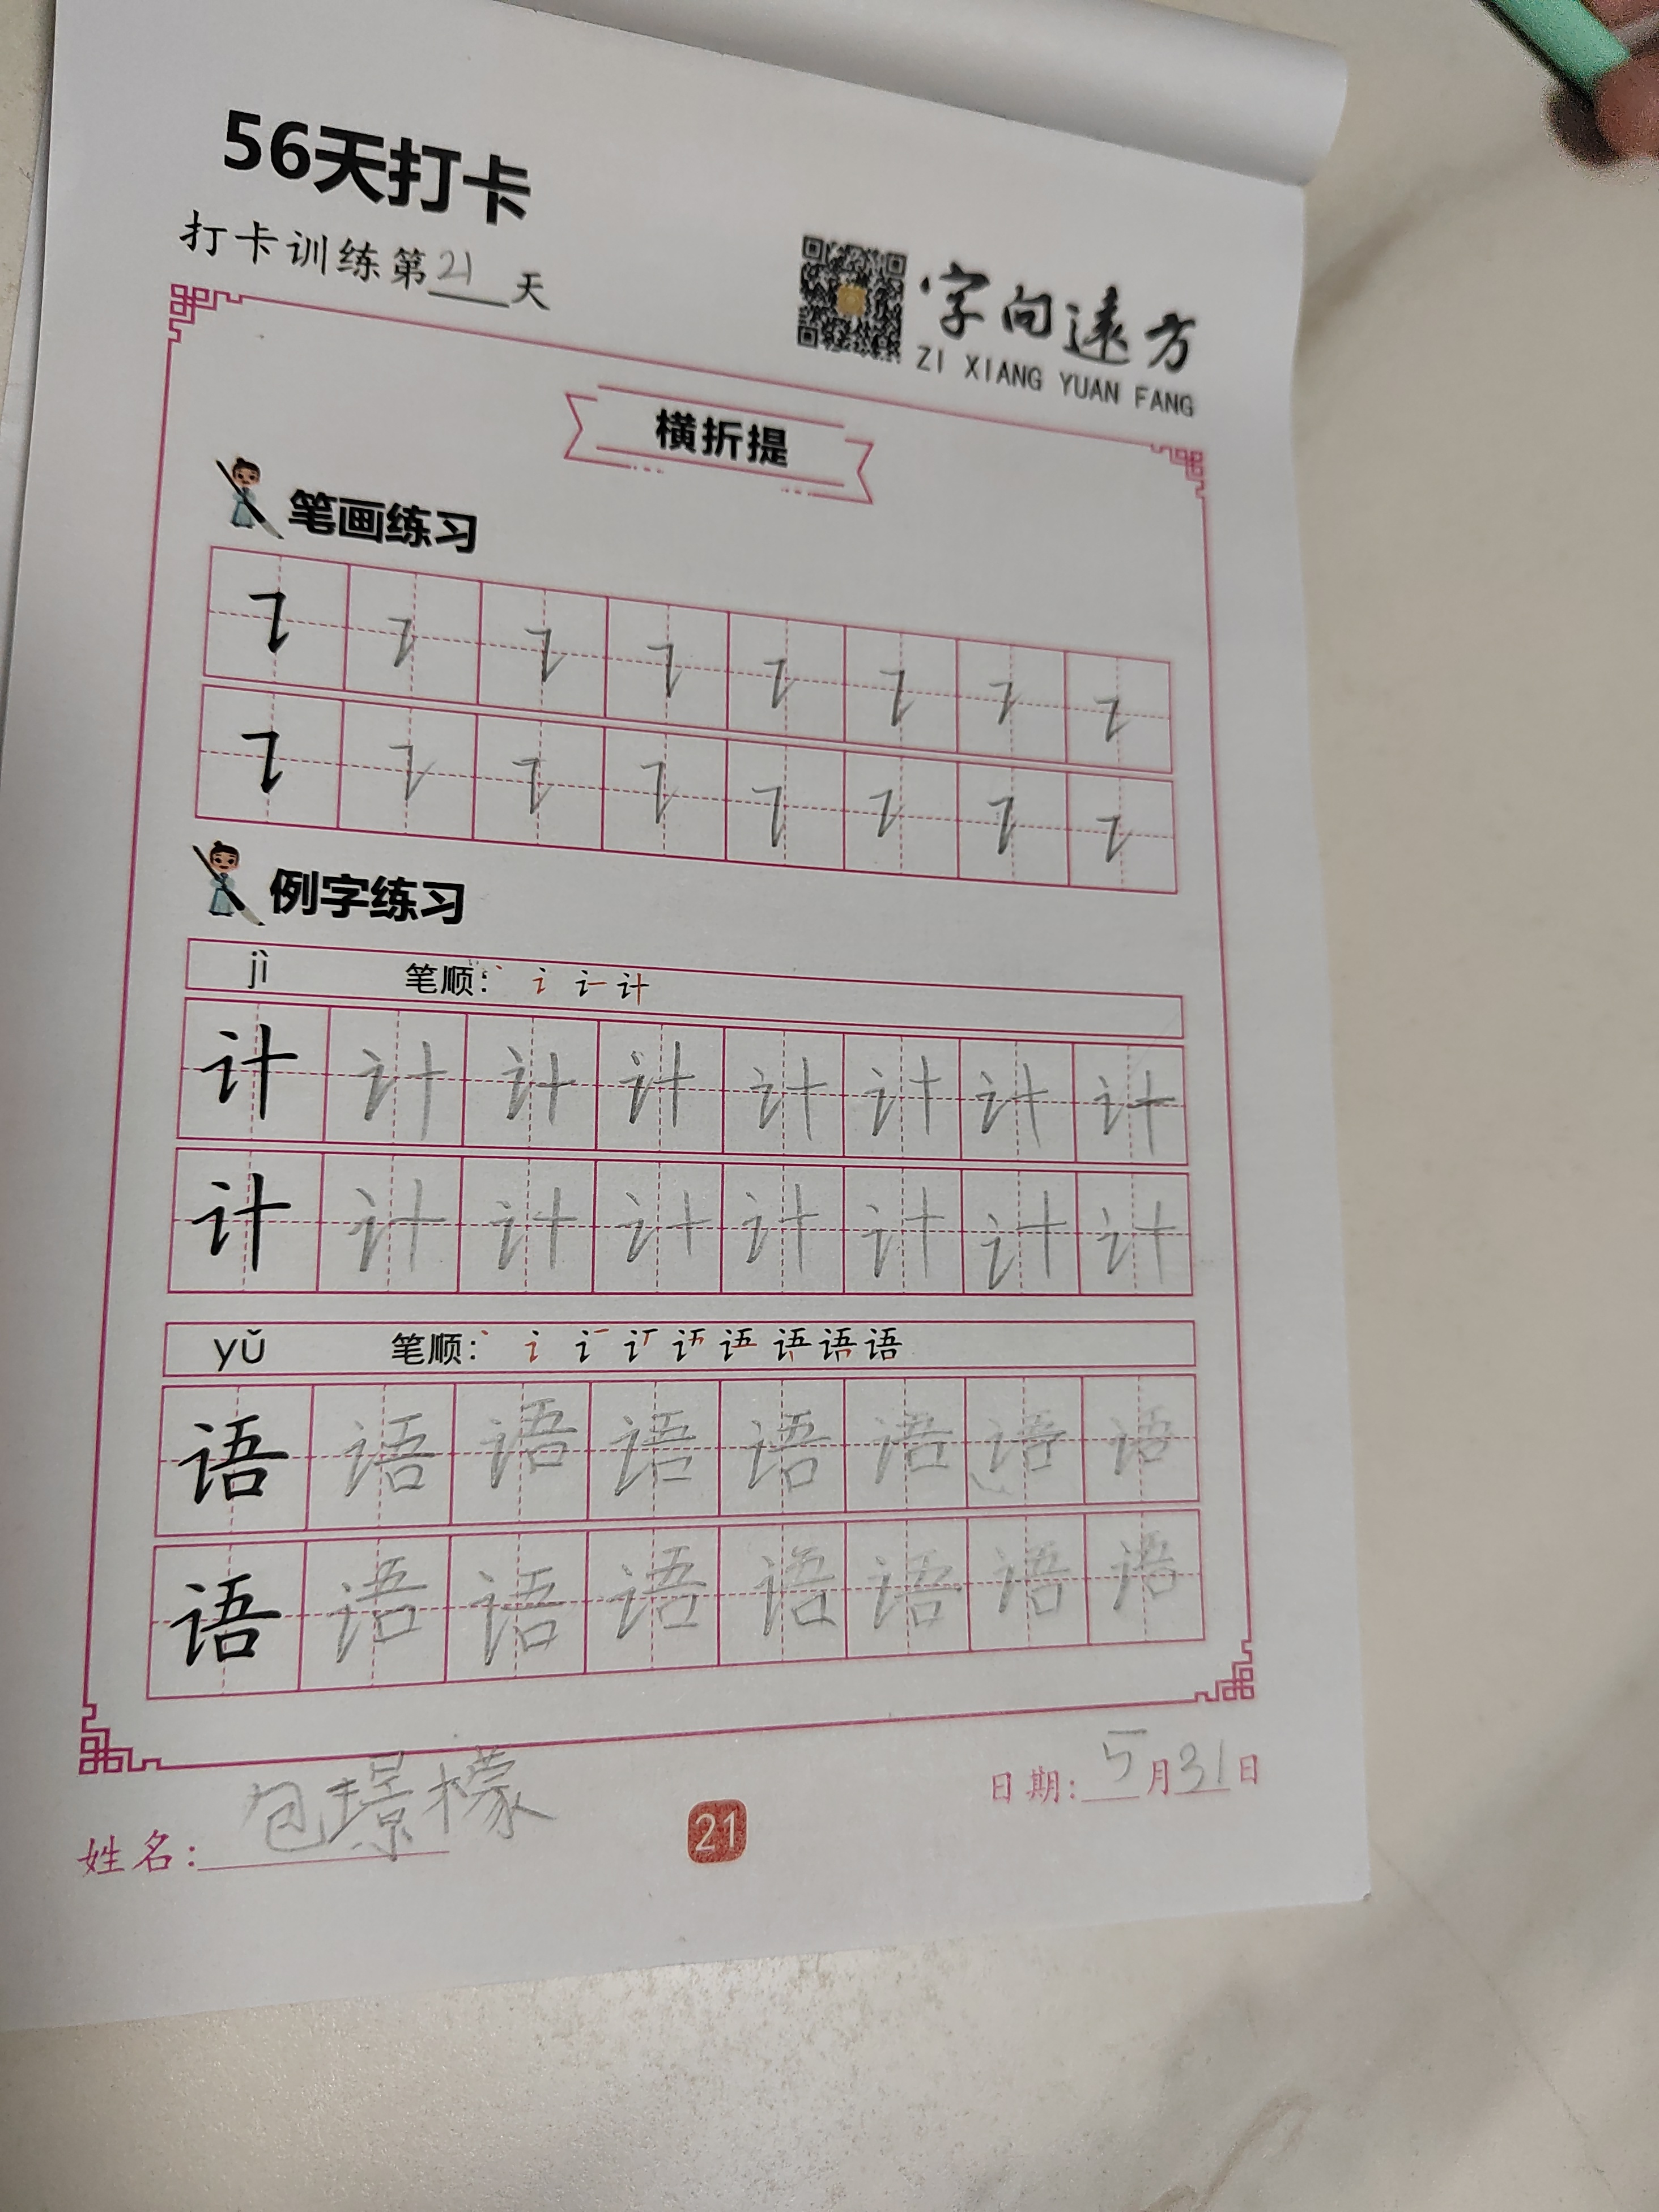 56天打卡
打卡训练第21天
字向遠方
ZI XIANG YUAN FANG
横折提
笔画练习
㇊ ㇊ ㇊ ㇊ ㇊ ㇊ ㇊ ㇊
㇊ ㇊ ㇊ ㇊ ㇊ ㇊ ㇊ ㇊
例字练习
jì 笔顺: 丶 讠 计
计 计 计 计 计 计 计 计
计 计 计 计 计 计 计 计
yǔ 笔顺: 丶 讠 语
语 语 语 语 语 语 语 语
语 语 语 语 语 语 语 语
姓名: 包璟檬
21
日期: 5月31日